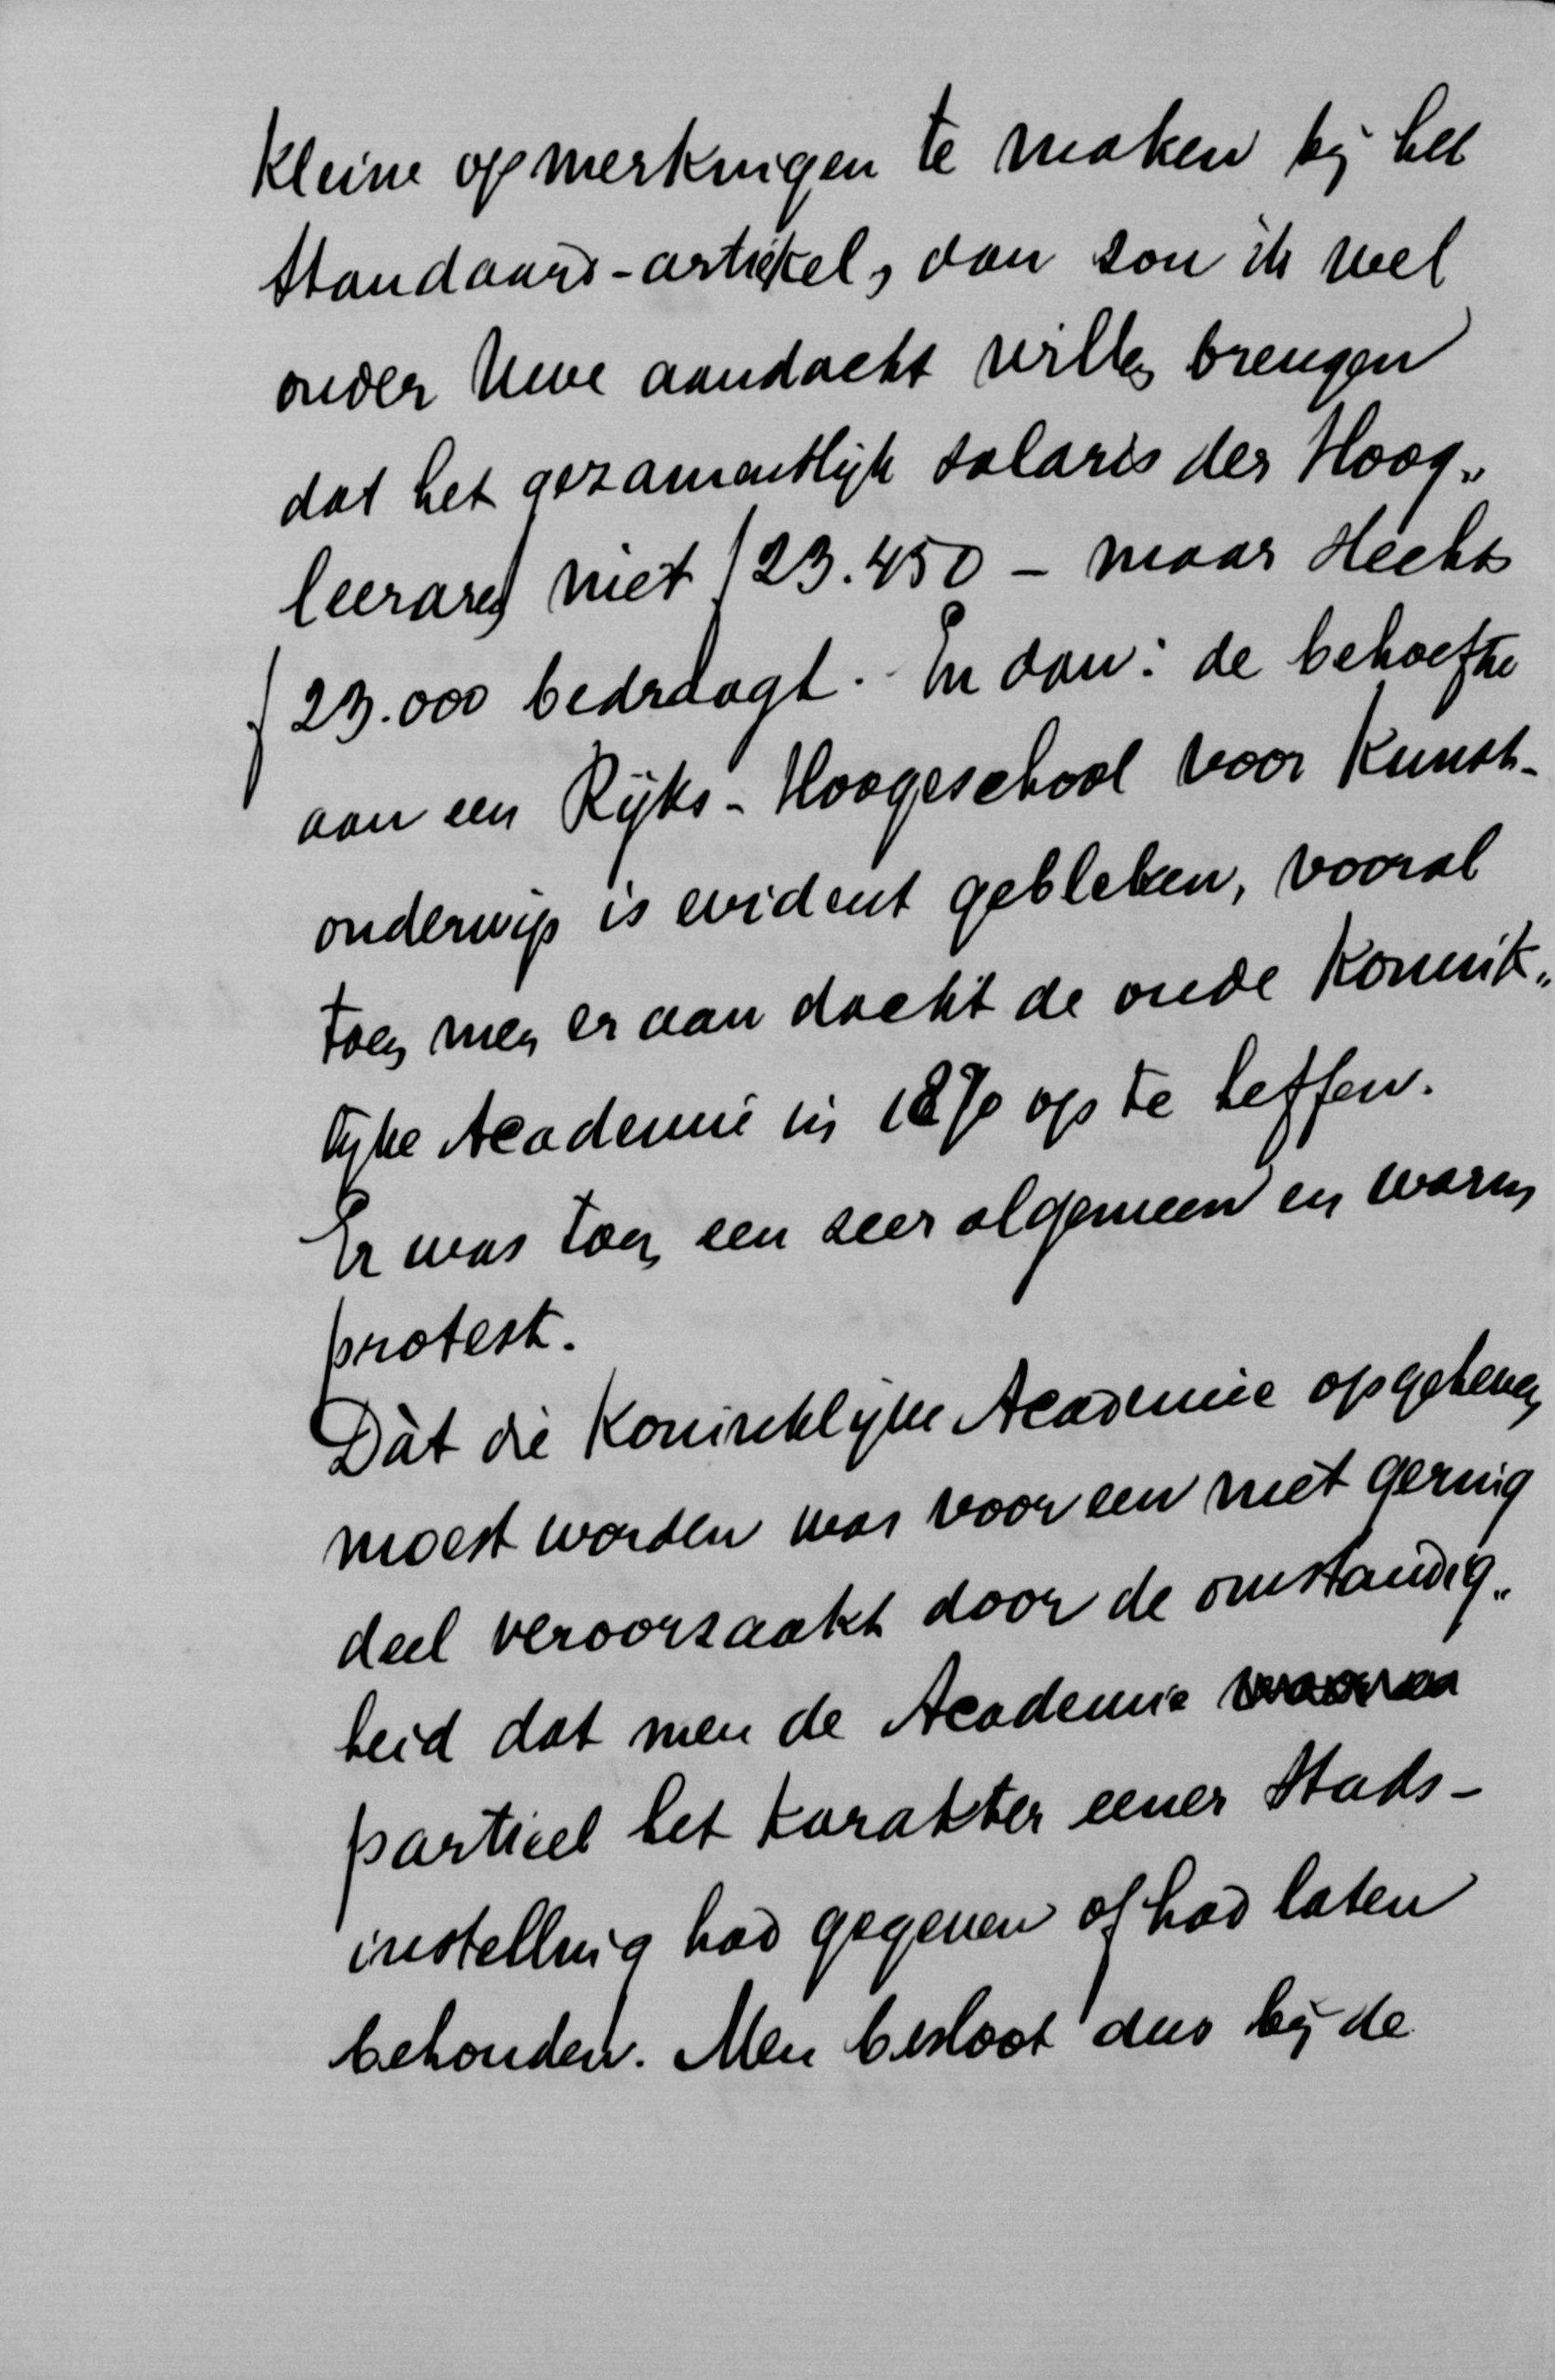 kleine opmerkingen te maken bij het
Standaard-artikel, dan zou ik wel
onder Uwe aandacht willen brengen
dat het gezamentlijk salaris der Hoog„
leeraren niet ƒ 23.450 – maar slechts
ƒ 23.000 bedraagt. En dan: de behoefte
aan een Rijks-Hoogeschool voor Kunst-
onderwijs is evident gebleken, vooral
toen men er aan dacht de oude Konink„
lijke Academie in 1870 op te heffen.
Er was toen een zeer algemeen en warm
protest.
Dàt die Koninklijke Academie opgeheven
moest worden was voor een niet gering
deel veroorzaakt door de omstandig„
heid dat men de Academie
partieel het karakter eener Stads-
instelling had gegeven of had laten
behouden. Men besloot dus bij de